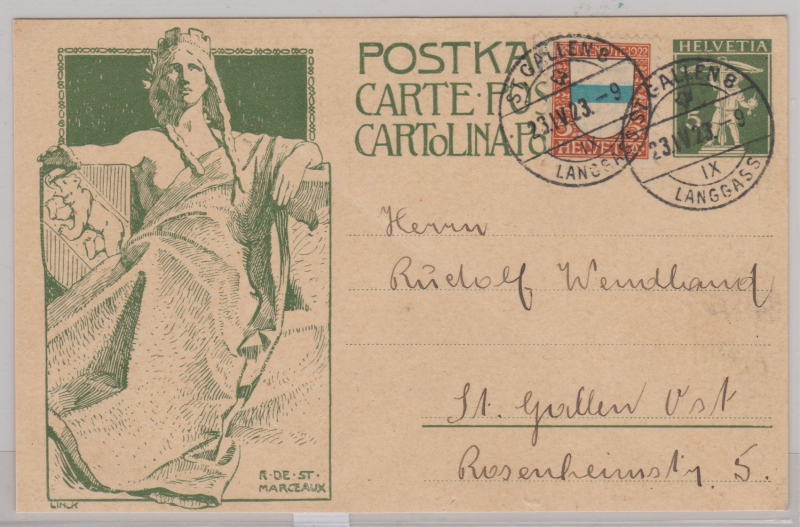 POSTKA
CARTE·POS
CARTOLINA·PO
ST. GALLEN 8
23.IV.23.-9
LANGGASS
1922
5
HELVETIA
ST. GALLEN 8
23.IV.23.-9
IX
LANGGASS
HELVETIA
5
Herrn
Rudolf Wendland
St. Gallen Ost
Rosenheimstr. 5.
R·DE·ST·
MARCEAUX
LINCK